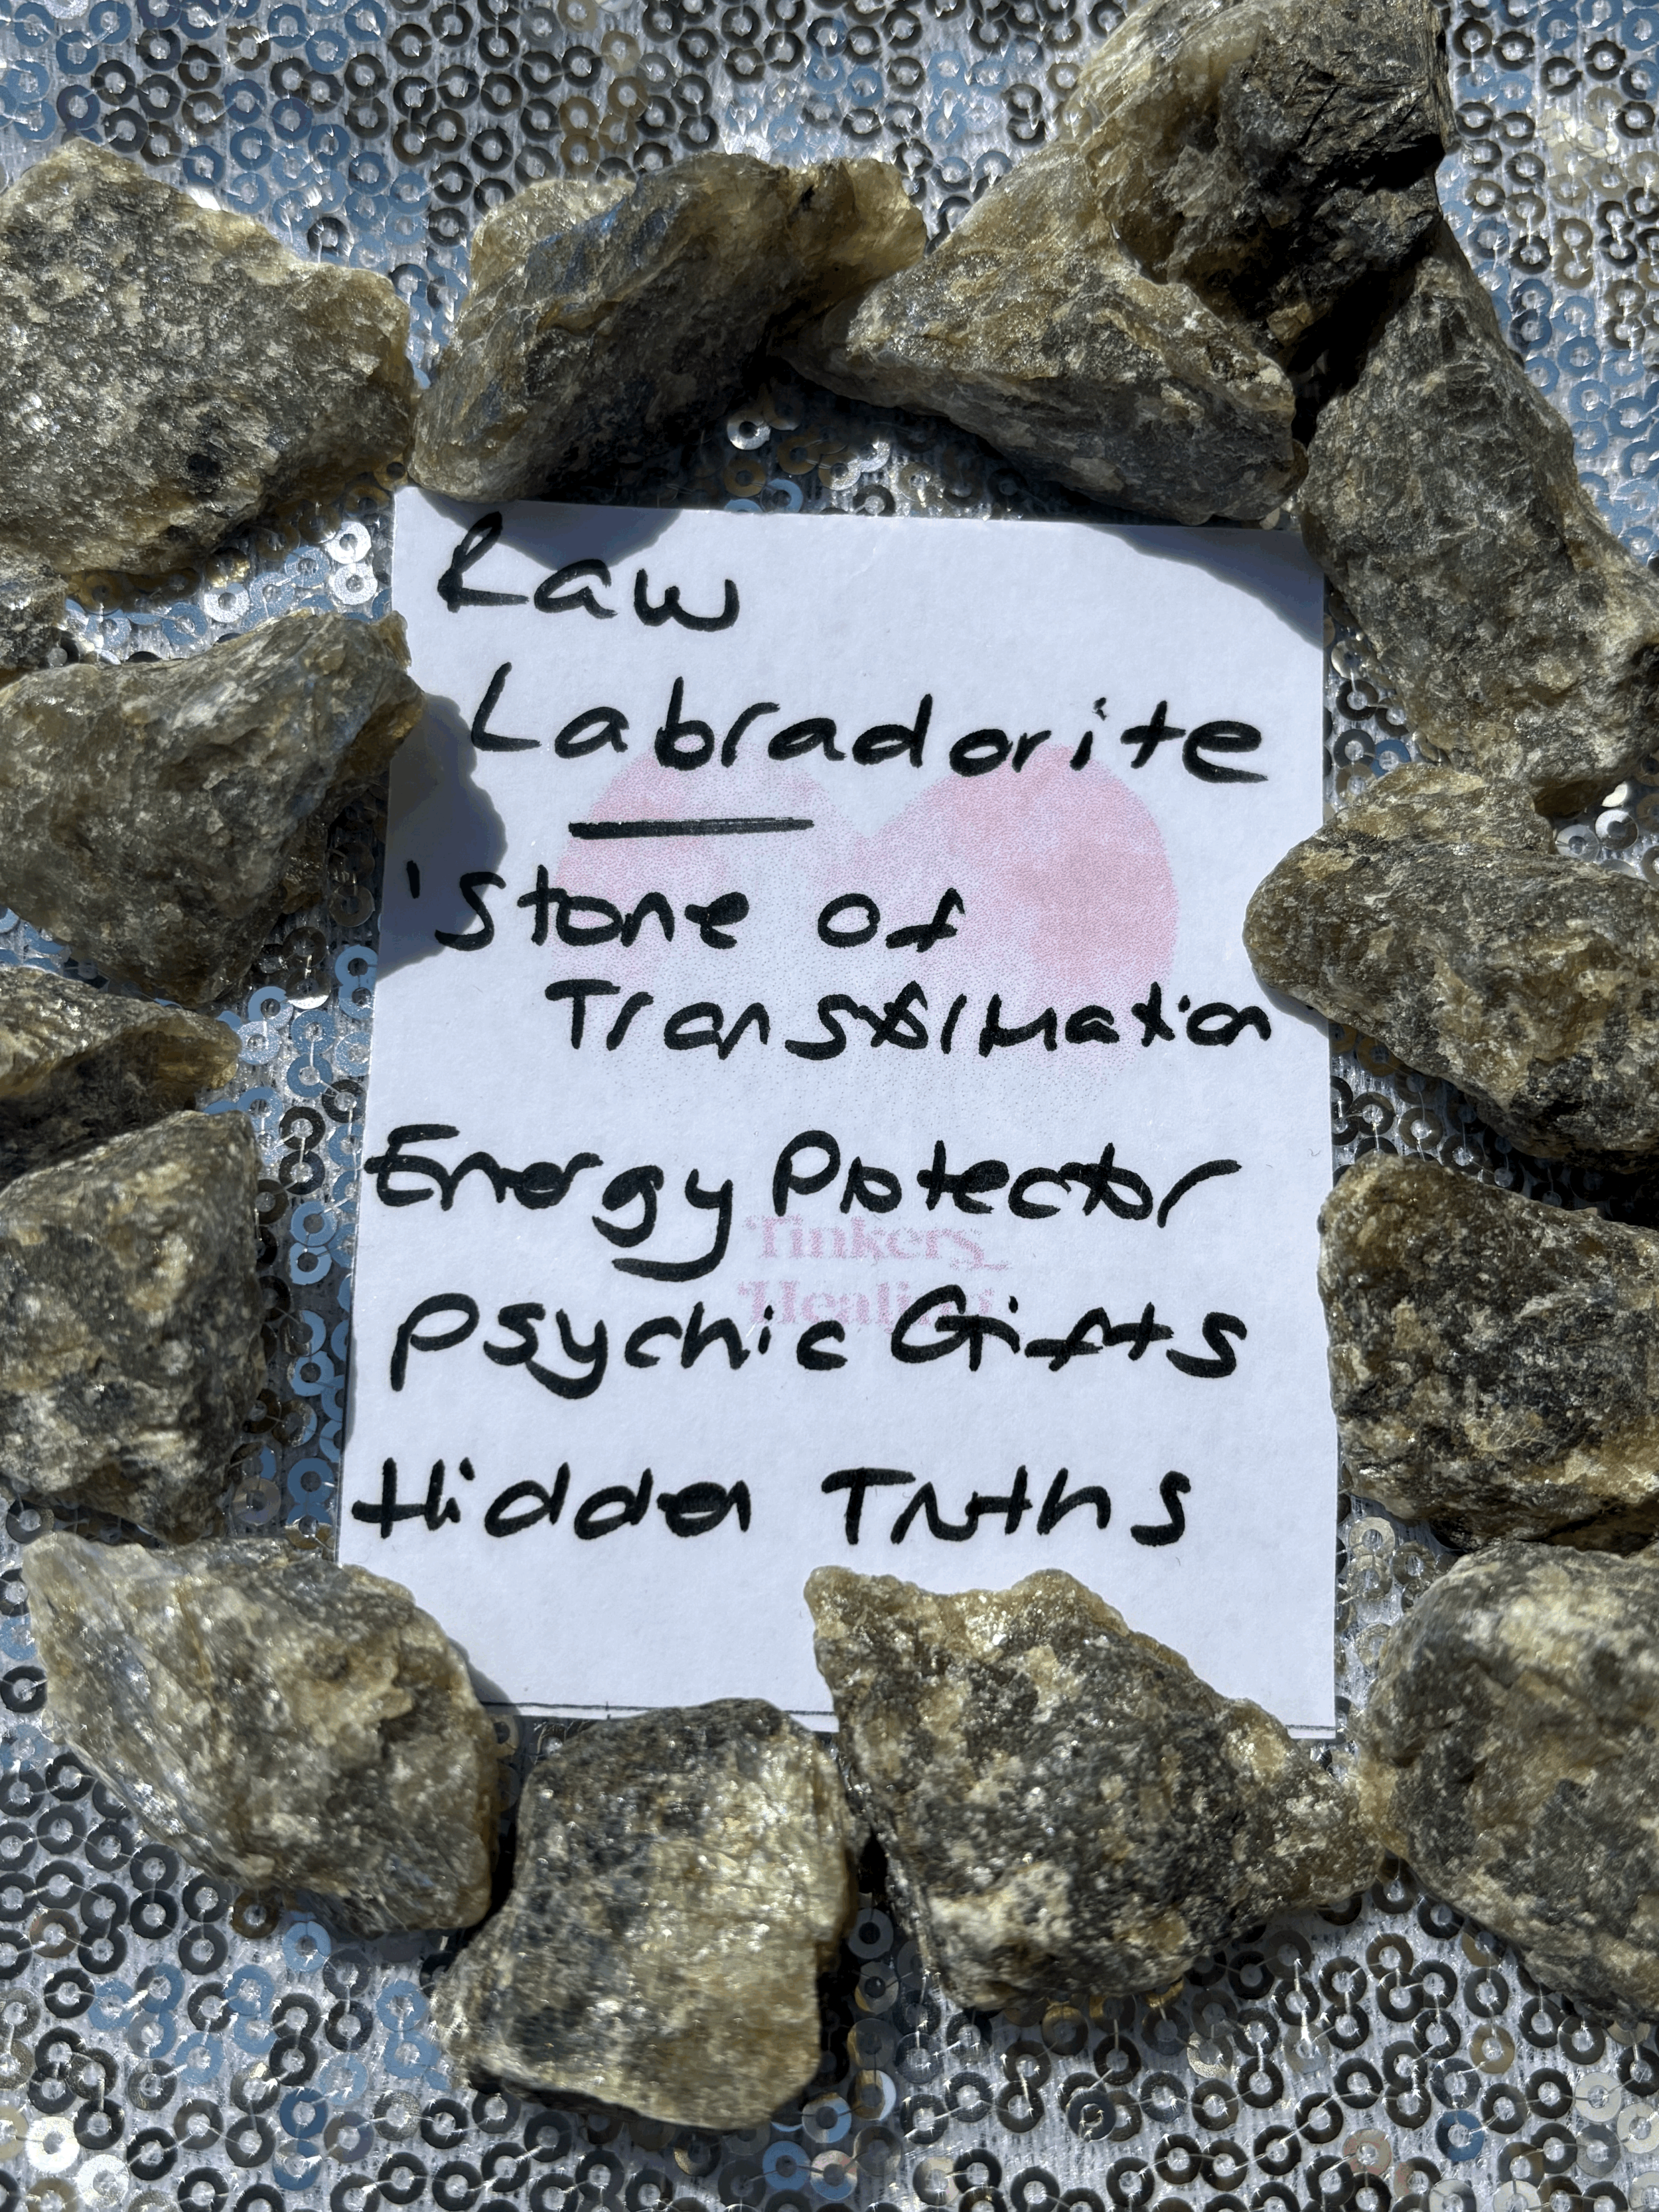 Raw
Labradorite
'Stone of
Transformation
Energy Protector
Tinkers
Healing
Psychic Gifts
Hidden Truths